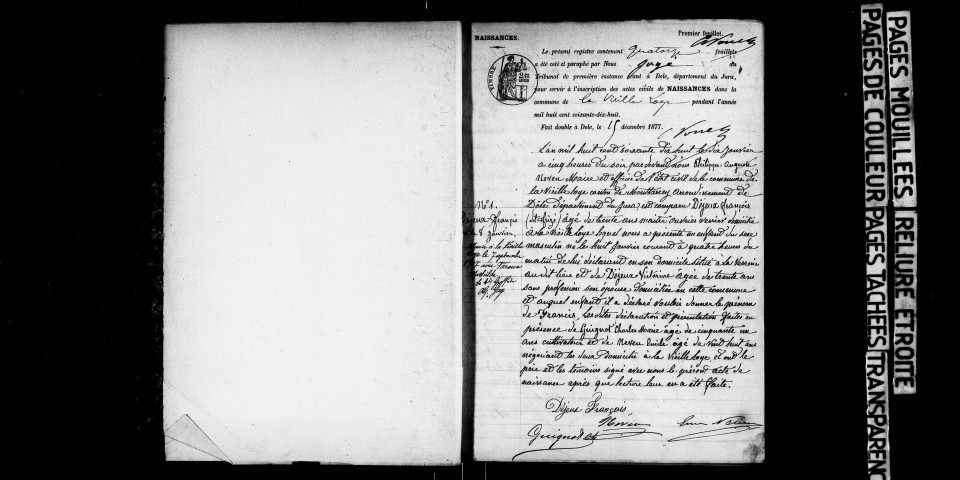 NAISSANCES.
Premier feuillet.
Le présent registre contenant quatorze feuillets
a été coté et paraphé par Nous Juge du
Tribunal de première instance séant à Dole, département du Jura,
pour servir à l'inscription des actes civils de NAISSANCES dans la
commune de La Vieille Loye pendant l'année
mil huit cent soixante-dix-huit.
Fait double à Dole, le 15 décembre 1877.
TIMBRE
L'an mil huit cent soixante dix huit le dix Janvier
à cinq heures du soir par devant nous Philippe Auguste
Maire et officier de l'état civil de la commune de
la Vieille Loye canton de Montbarrey arrondissement de
Dôle Département du Jura, est comparu Déjeux François
âgé de trente ans maitre ouvrier verrier domicilié
à la Vieille Loye lequel nous a présenté un enfant du sexe
masculin né le huit Janvier courant à quatre heures du
matin de lui déclarant en son domicile situé à la Verrerie
au dit lieu et de Déjeux Victorine âgée de trente ans
sans profession son épouse domiciliée en cette commune
et auquel enfant il a déclaré vouloir donner le prénom
de Francis, Les dites déclaration et présentation faites en
présence de Guignot Charles Marie âgé de cinquante un
ans cultivateur et de Emile âgé de vingt huit ans
négociant les deux domiciliés à la Vieille Loye, et ont le
père et les témoins signé avec nous le présent acte de
naissance après que lecture leur en a été faite.
N° 1.
Déjeux Francis
8 Janvier
Déjeux François
Guignot
PAGES MOUILLÉES RELIURE ÉTROITE
PAGES DE COULEUR PAGES TACHÉES TRANSPARENC